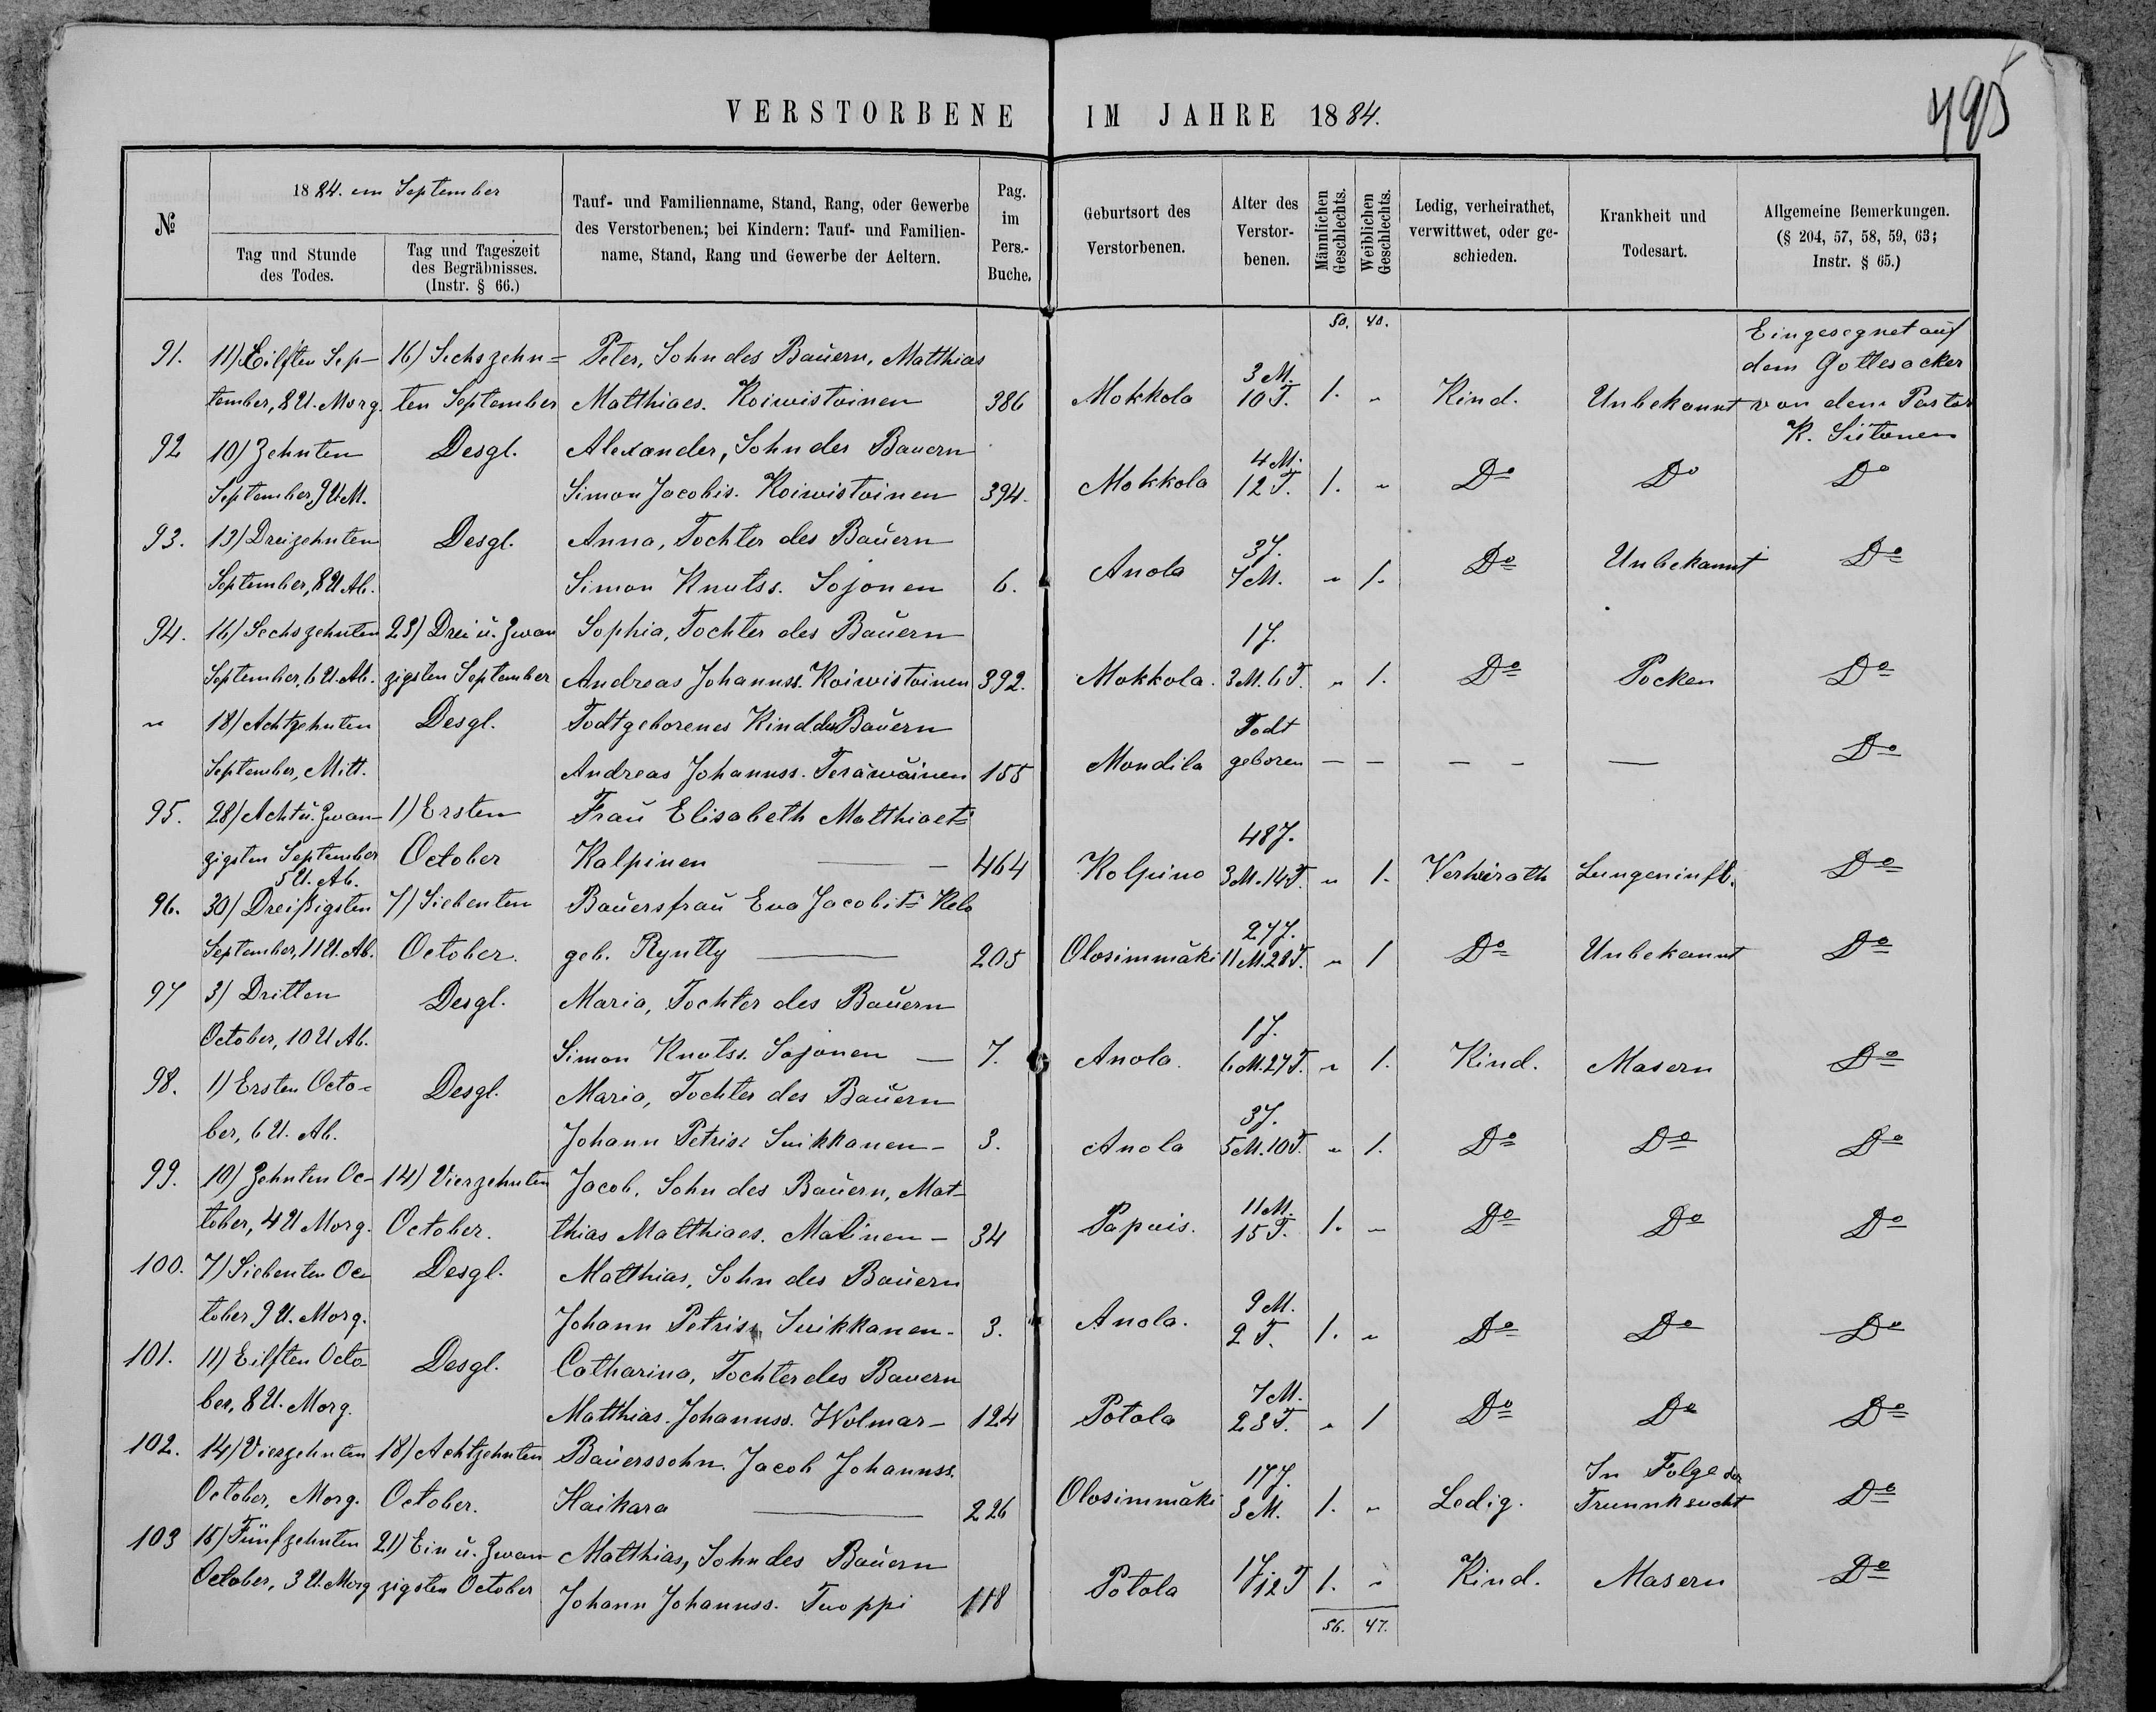 VERSTORBENE IM JAHRE 1884.
495
№
1884. im September
Tag und Stunde
des Todes.
Tag und Tageszeit
des Begräbnisses.
(Instr. § 66.)
Tauf- und Familienname, Stand, Rang, oder Gewerbe
des Verstorbenen; bei Kindern: Tauf- und Familien-
name, Stand, Rang und Gewerbe der Aeltern.
Pag.
im
Pers.-
Buche.
Geburtsort des
Verstorbenen.
Alter des
Verstor-
benen.
Männlichen
Geschlechts.
Weiblichen
Geschlechts.
Ledig, verheirathet,
verwittwet, oder ge-
schieden.
Krankheit und
Todesart.
Allgemeine Bemerkungen.
(§ 204, 57, 58, 59, 63;
Instr. § 65.)
50. 40.
91. 11) Eilften Sep- 16) Sechszehn= Peter, Sohn des Bauern, Matthias 3 M. Eingesegnet auf
dem Gottesacker
tember, 8 U. Morg. ten September Matthiaes. Koiwistoinen 386 Mokkola 10 T. 1. " Kind. Unbekannt von dem Pastor
K. Siitonen
92 10) Zehnten Desgl. Alexander, Sohn des Bauern 4 M.
September, 9 U M. Simon Jacobis. Koiwistoinen 394. Mokkola 12 T. 1. " Do Do Do
93. 13) Dreizehnten Desgl. Anna, Tochter des Bauern 3 J.
September, 8 U Ab. Simon Knutss. Sojonen 6. Anola 7 M. " 1. Do Unbekannt Do
94. 16) Sechszehnten 23) Drei u. Zwan Sophia, Tochter des Bauern 1 J.
September, 6 U. Ab. zigsten September Andreas Johannss. Koiwistoinen 392. Mokkola. 3 M. 6 T. " 1. Do Pocken Do
" 18) Achtzehnten Desgl. Todtgeborenes Kind des Bauern Todt
September, Mitt. Andreas Johannss. Teräwäinen 155 Mondila geboren — — — — — Do
95. 28) Acht u. Zwan- 1) Ersten Frau Elisabeth Matthiaet: 48 J.
zigsten September October Kalpinen — 464 Kolpino 3 M. 14 T. " 1. Verheirath Lungeninfl. Do
5 U. Ab.
96. 30) Dreißigsten 7) Siebenten Bauersfrau Eva Jacobit: Kelo 27 J.
September, 11 U. Ab. October. geb. Ryntty — 205 Olosimmäki 11 M. 28 T. " 1 Do Unbekannt Do
97 3) Dritten Desgl. Maria, Tochter des Bauern 1 J.
October, 10 U Ab. Simon Knutss. Sojonen — 7. Anola. 6 M. 27 T. " 1. Kind. Masern Do
98. 1) Ersten Octo- Desgl. Maria, Tochter des Bauern 3 J.
ber, 6 U. Ab. Johann Petriss Suikkanen — 3. Anola 5 M. 10 T. " 1. Do Do Do
99. 10) Zehnten Oc- 14) Vierzehnten Jacob, Sohn des Bauern, Mat- 11 M.
tober, 4 U Morg. October. thias Matthiaes. Malinen — 34 Papuis. 15 T. 1. " Do Do Do
100. 7) Siebenten Oc- Desgl. Matthias, Sohn des Bauern 9 M.
tober 9 U. Morg. Johann Petriss Suikkanen. 3. Anola. 2 T. 1. " Do Do Do
101. 11) Eilften Octo- Desgl. Catharina, Tochter des Bauern 7 M.
ber, 8 U. Morg. Matthias Johannss. Wolmar — 124 Potola 23 T. " 1 Do Do Do
102. 14) Vierzehnten 18) Achtzehnten Bauerssohn. Jacob Johannss. 17 J. In Folge der
October, Morg. October. Haikara — 226 Olosimmäki 3 M. 1. " Ledig. Trunnksucht Do
103 15) Fünfzehnten 21) Ein u. Zwan Matthias, Sohn des Bauern
October, 3 U. Morg zigsten October Johann Johannss. Tuoppi 118 Potola 1 J 12 T 1. " Kind. Masern Do
56. 47.